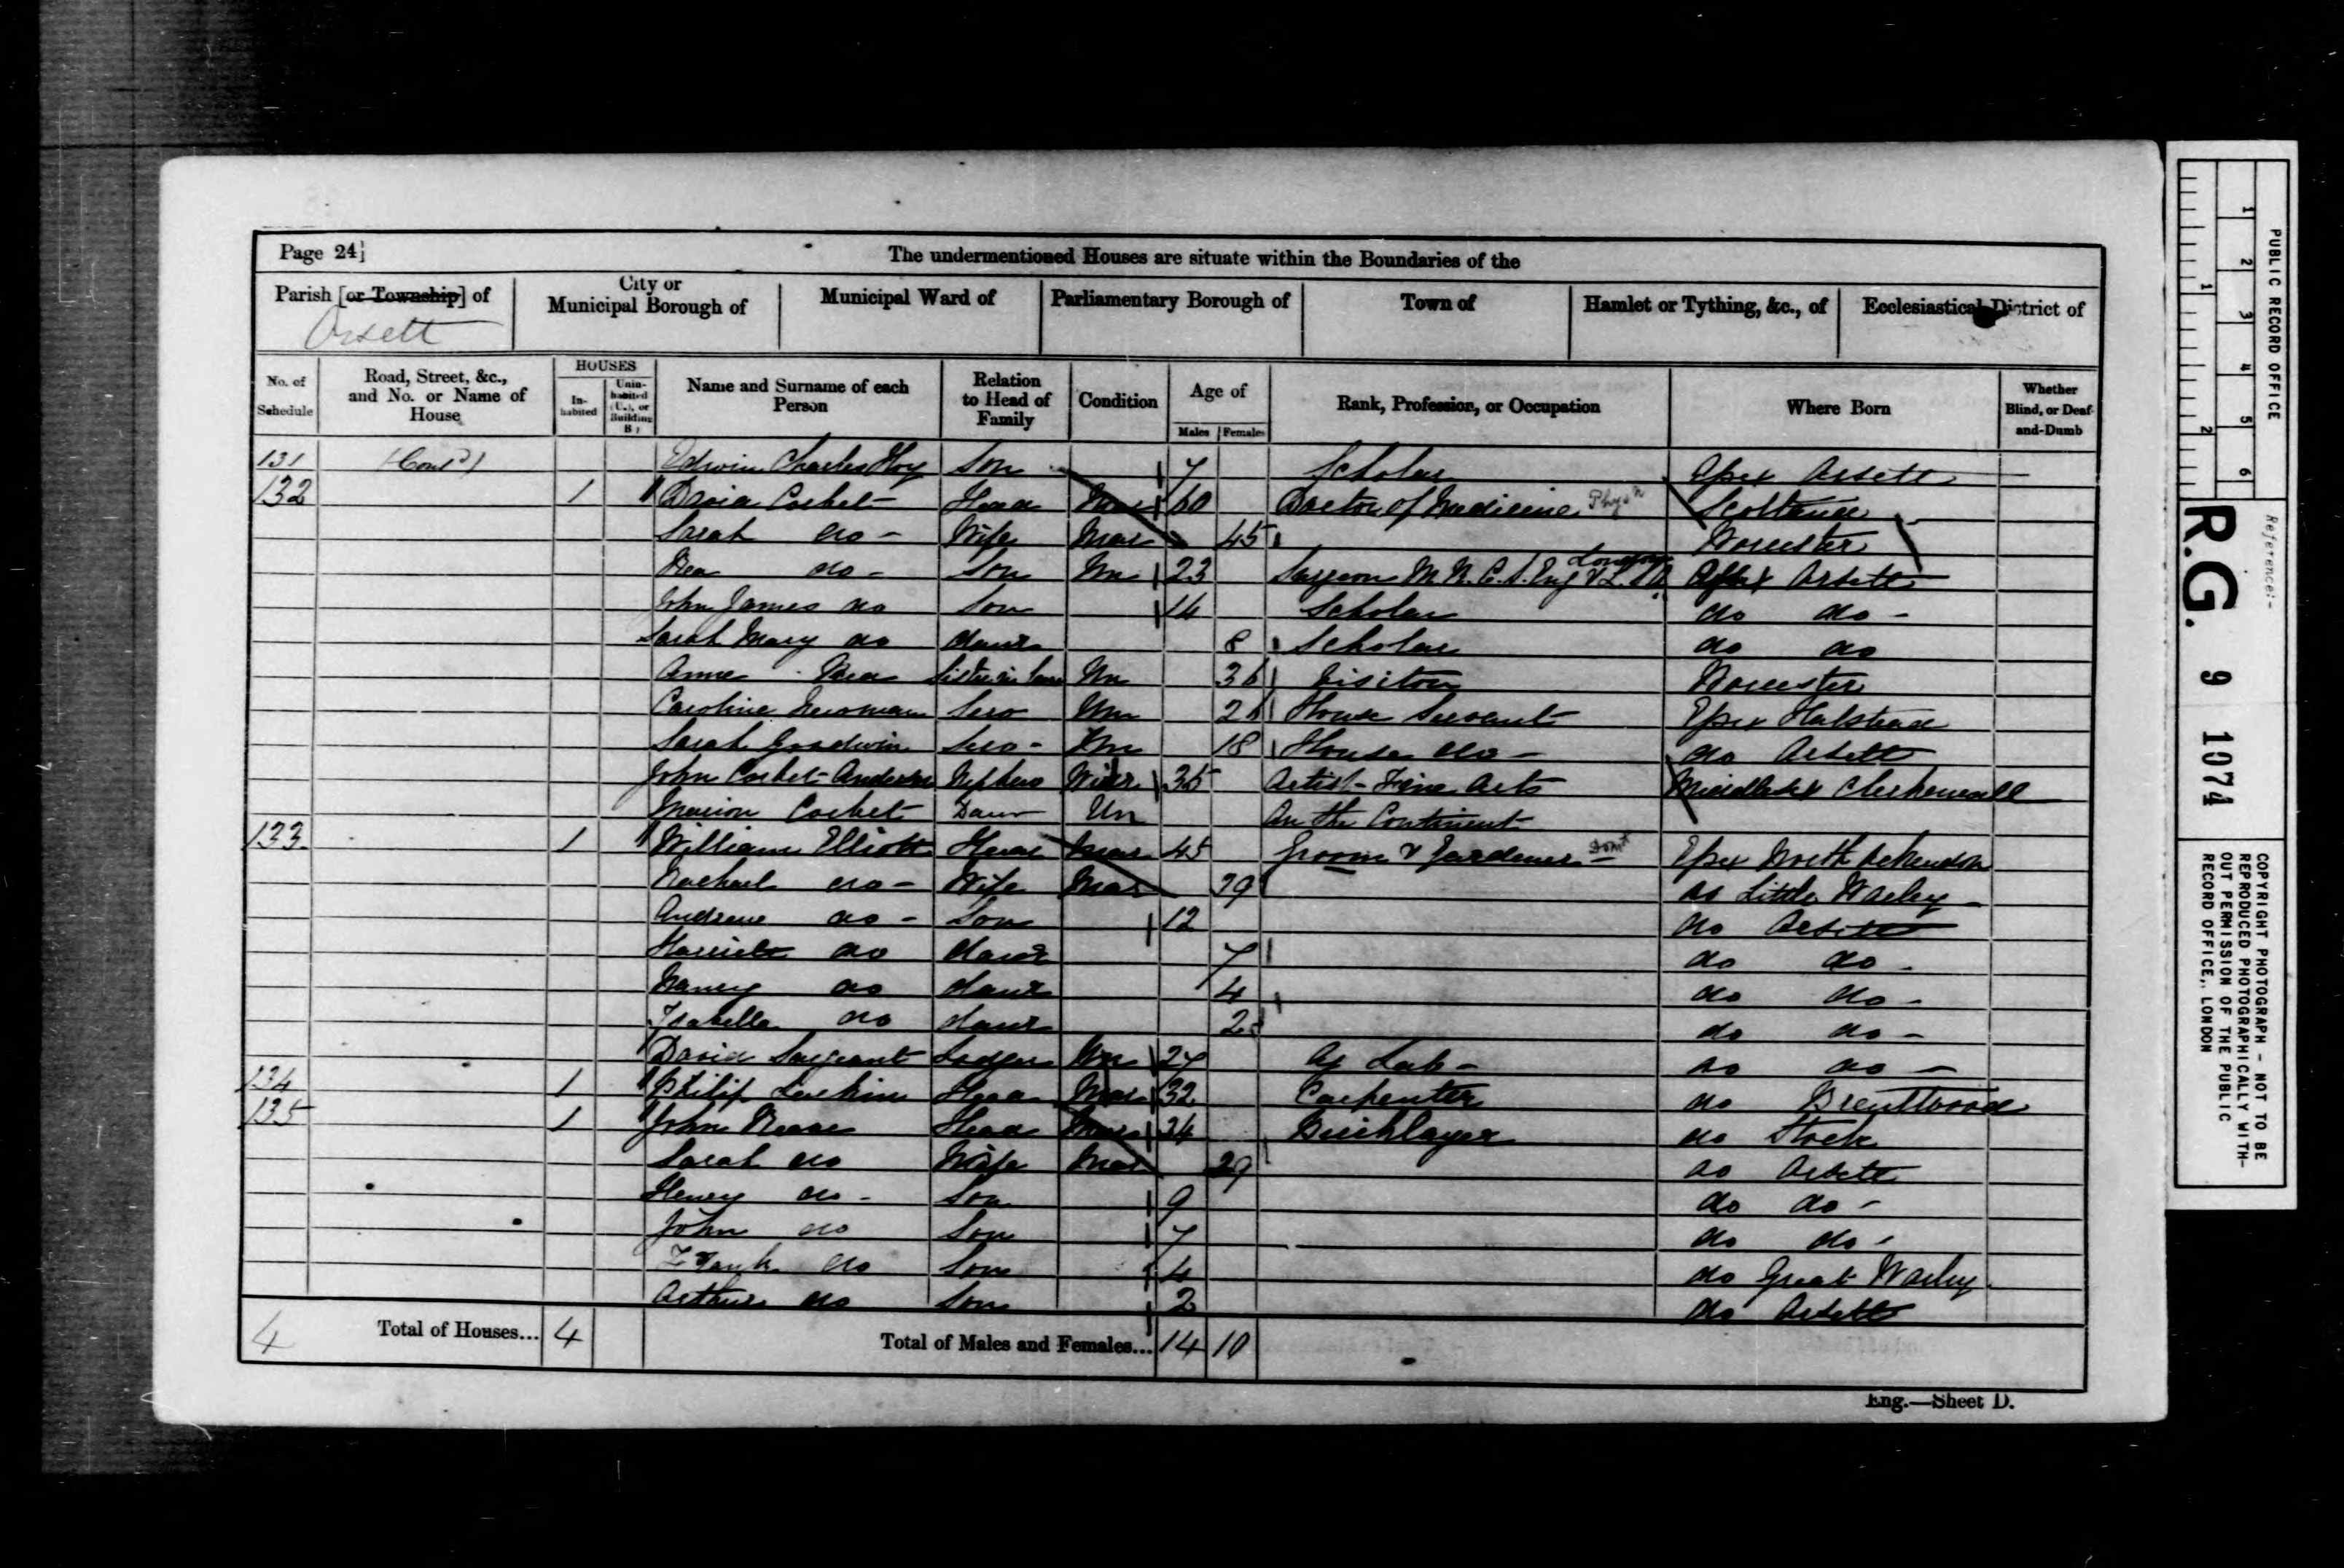 Page 24]
The undermentioned Houses are situate within the Boundaries of the
Parish [or Township] of
City or
Municipal Borough of
Municipal Ward of
Parliamentary Borough of
Town of
Hamlet or Tything, &c., of
Ecclesiastical District of
Orsett
No. of
Schedule
Road, Street, &c.,
and No. or Name of
House
HOUSES
In-
habited
Unin-
habited
(U.), or
Building
B)
Name and Surname of each
Person
Relation
to Head of
Family
Condition
Age of
Males
Females
Rank, Profession, or Occupation
Where Born
Whether
Blind, or Deaf-
and-Dumb
131 (Contd) Edwin Charles Hoy Son 7 Scholar Essex Orsett
132 1 David Corbet Head Mar 60 Doctor of Medicine Physn Scotland
Sarah do - Wife Mar 45 Worcester
do - Son Un 23 Surgeon M.R.C.S. Eng & L.S.A. London Essex Orsett
John James do Son 14 Scholar do do -
Sarah Mary do daur 8 Scholar do do
Anne Sister in law Un 36 Visitor Worcester
Caroline Newman Serv Un 26 House Servant Essex Halstead
Sarah Goodwin Serv - Un 18 House do - do Orsett
John Corbet Anderson Nephew Widr 35 Artist - Fine Arts Middlesex Clerkenwell
Marion Corbet Daur Un On the Continent
133 1 William Elliott Head Mar 45 Groom & Gardener - Domt Essex North Ockendon
Rachael do - Wife Mar 39 do Little Warley -
Andrew do - Son 12 do Orsett
Harriett do daur 7 do do -
Nancy do daur 4 do do -
Isabella do daur 2 do do -
David Sargeant Lodger Un 27 Ag Lab - do do -
134 1 Philip Luckin Head Mar 32 Carpenter do Brentwood
135 1 John Head Mar 34 Bricklayer do Stock
Sarah do Wife Mar 29 do Orsett
Henry do - Son 9 do do -
John do Son 7 do do -
Frank do Son 4 do Great Warley
Arthur do Son 2 do Orsett
4 Total of Houses... 4 Total of Males and Females... 14 10
Eng.—Sheet D.
PUBLIC RECORD OFFICE
1 2 3 4 5 6
1 2
Reference:-
R.G. 9 1074
COPYRIGHT PHOTOGRAPH - NOT TO BE
REPRODUCED PHOTOGRAPHICALLY WITH-
OUT PERMISSION OF THE PUBLIC
RECORD OFFICE, LONDON